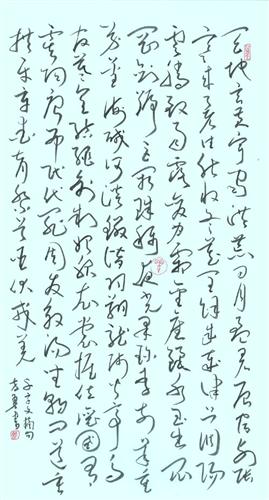 天地玄黃宇宙洪荒日月盈昃辰宿列張
寒來暑往秋收冬藏閏餘成歲律呂調陽
雲騰致雨露結為霜金生麗水玉出崑
岡劍號巨闕珠稱夜光果珍李柰菜重
芥薑海鹹河淡鱗潛羽翔龍師火帝鳥
官人皇始制文字乃服衣裳推位讓國有
虞陶唐弔民伐罪周發殷湯坐朝問道垂
拱平章愛育黎首臣伏戎羌
千字文摘句